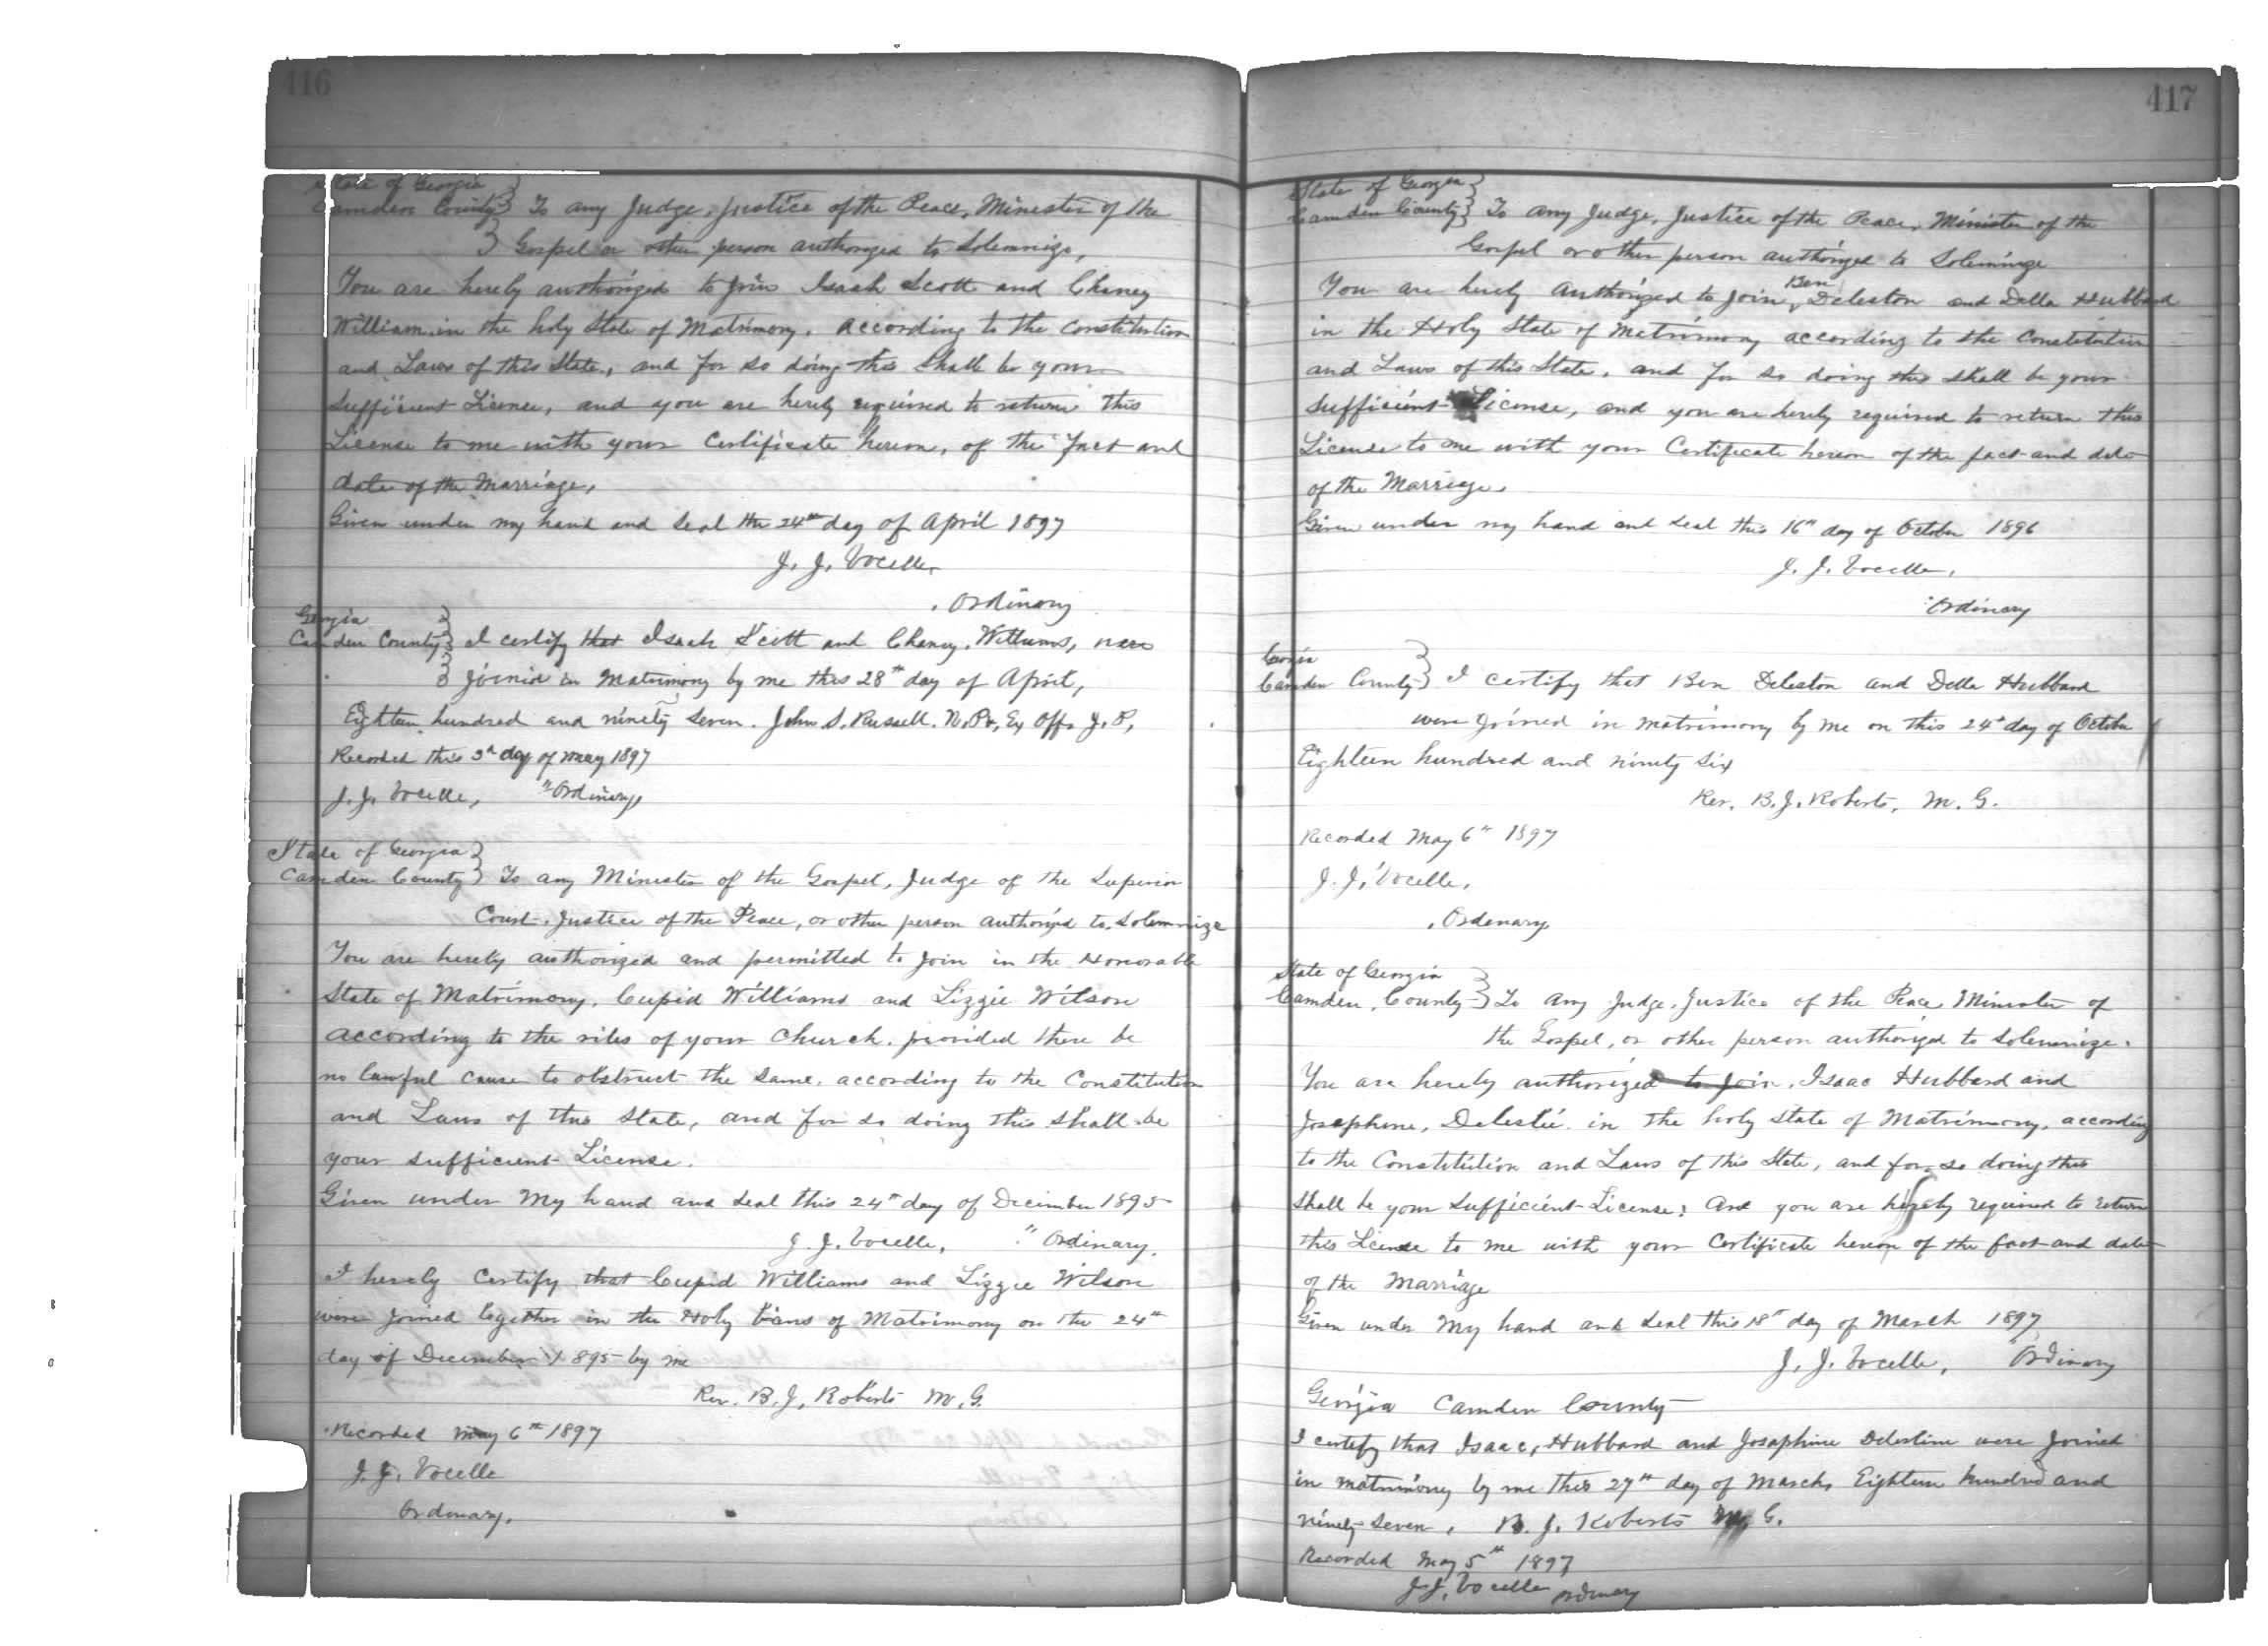 416
State of Georgia
Camden County } To any Judge, Justice of the Peace, Minister of the
Gospel or other person authorized to Solemnize,
You are hereby authorized to join Isaah Scott and Chaney
William in the holy State of Matrimony, according to the Constitution
and Laws of this State, and for so doing this Shall be your
Sufficient License, and you are hereby required to return this
License to me with your Certificate hereon, of the fact and
date of the Marriage,
Given under my hand and Seal the 24th day of April 1897
J. J. Vocelle
Ordinary
Georgia
Camden County } I certify that Isaah Scott and Chaney Williams, were
joined in Matrimony by me this 28th day of April,
Eighteen hundred and ninety seven. John S. Russell. N.P., Ex Off. J. P.
Recorded this 3d day of May 1897
J. J. Vocelle, Ordinary
State of Georgia
Camden County } To any Minister of the Gospel, Judge of the Superior
Court, Justice of the Peace, or other person authorized to Solemnize
You are hereby authorized and permitted to join in the Honorable
State of Matrimony, Cupid Williams and Lizzie Wilson
according to the rites of your Church, provided there be
no lawful cause to obstruct the same, according to the Constitution
and Laws of this State, and for so doing this shall be
your sufficient License.
Given under My hand and Seal this 24th day of December 1895
J. J. Vocelle, Ordinary.
I hereby Certify that Cupid Williams and Lizzie Wilson
were joined together in the Holy Bans of Matrimony on the 24th
day of December 1895 by me
Rev. B. J. Roberts M. G.
Recorded May 6th 1897
J. J. Vocelle
Ordinary.
417
State of Georgia
Camden County } To any Judge, Justice of the Peace, Minister of the
Gospel or other person authorized to Solemnize
You are hereby authorized to join Ben Deleston and Della Hubbard
in the Holy State of Matrimony according to the Constitution
and Laws of this State, and for so doing this shall be your
Sufficient License, and you are hereby required to return this
License to me with your Certificate hereon of the fact and date
of the Marriage.
Given under my hand and seal this 16th day of October 1896
J. J. Vocelle,
Ordinary
Georgia
Camden County } I certify that Ben Deleston and Della Hubbard
were joined in matrimony by me on this 24th day of October
Eighteen hundred and ninety six
Rev. B. J. Roberts, M. G.
Recorded May 6th 1897
J. J. Vocelle,
Ordenary
State of Georgia
Camden County } To any Judge, Justice of the Peace Minister of
the Gospel, or other person authorized to Solemnize.
You are hereby authorized to join, Isaac Hubbard and
Josephine, Delestie in the holy State of Matrimony, according
to the Constitution and Laws of this State, and for so doing this
shall be your Sufficient License: And you are hereby required to return
this License to me with your Certificate hereon of the fact and date
of the Marriage
Given under My hand and Seal this 18th day of March 1897
J. J. Vocelle, Ordinary
Georgia Camden County
I certify that Isaac, Hubbard and Josaphine Delestine were joined
in matrimony by me this 27th day of March Eighteen hundred and
ninety seven, B. J. Roberts M. G.
Recorded May 5th 1897
J. J. Vocelle ordinary